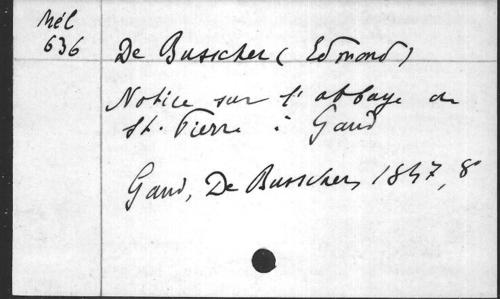 Mél
636
De Busscher (Edmond)
Notice sur l'abbaye de
St. Pierre à Gand
Gand, De Busscher, 1847, 8°